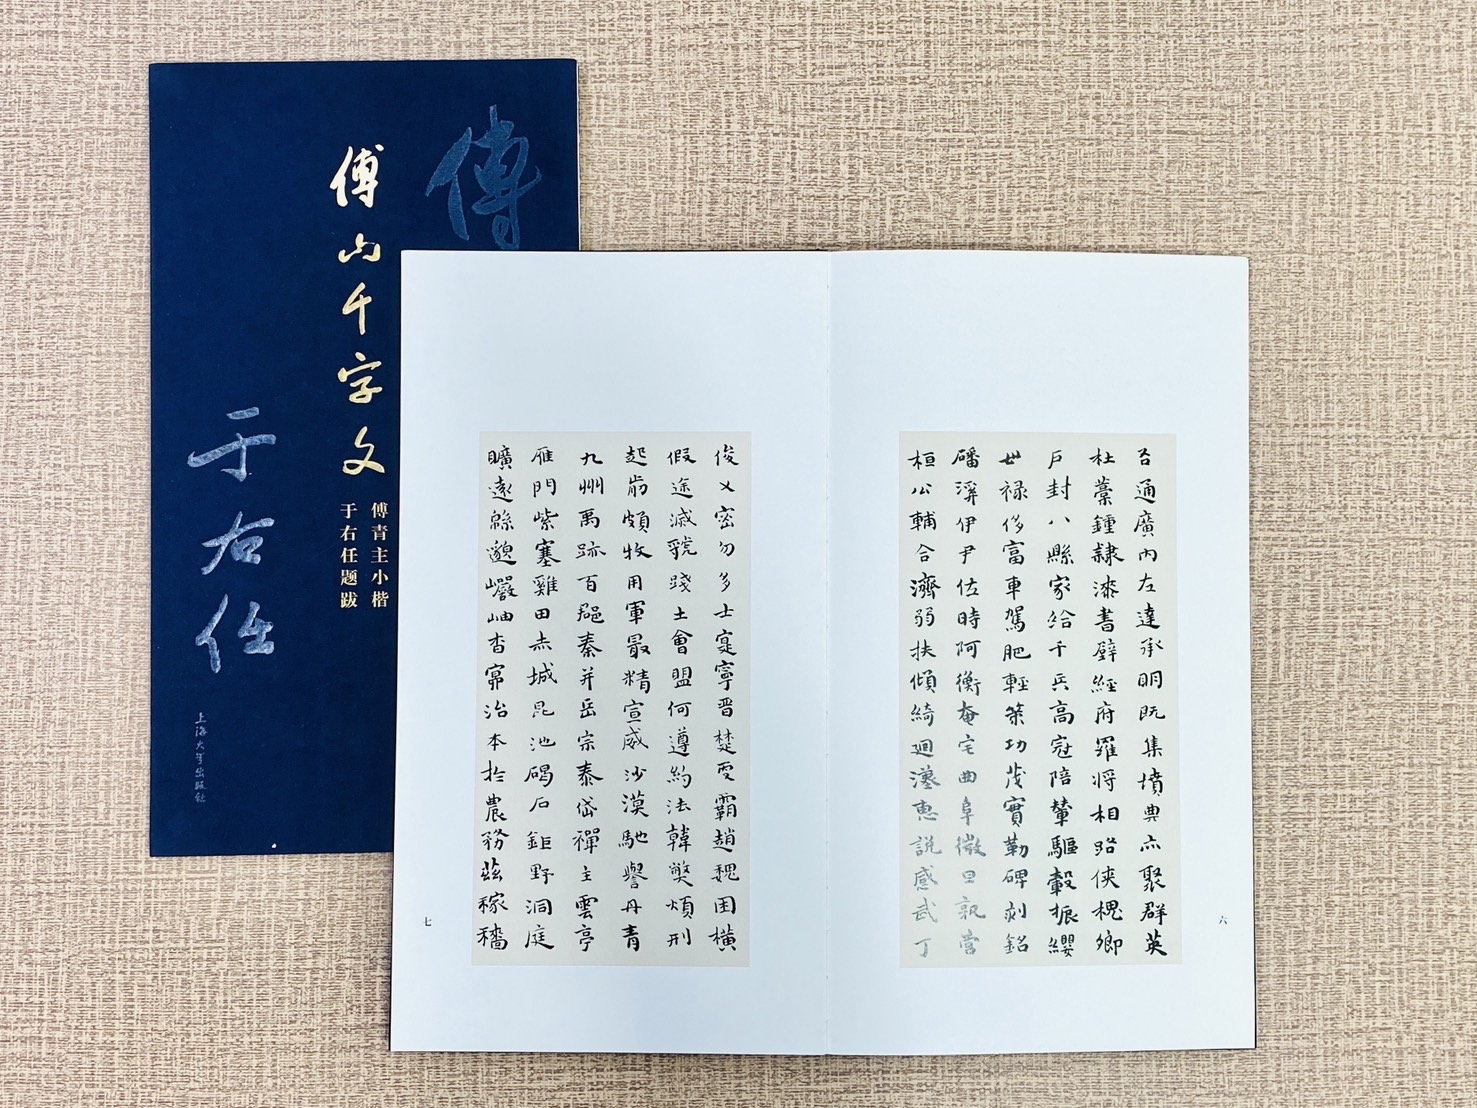 傅
傅山千字文
傅青主小楷
于右任题跋
于右任
上海大学出版社
右通廣內左達承明既集墳典亦聚群英
杜藁鍾隸漆書壁經府羅將相路俠槐卿
戶封八縣家給千兵高冠陪輦驅轂振纓
世祿侈富車駕肥輕策功茂實勒碑刻銘
磻溪伊尹佐時阿衡奄宅曲阜微旦孰營
桓公輔合濟弱扶傾綺迴漢惠說感武丁
六
俊乂密勿多士寔寧晋楚更霸趙魏困橫
假途滅虢踐土會盟何遵約法韓弊煩刑
起翦頗牧用軍最精宣威沙漠馳譽丹青
九州禹跡百郡秦并岳宗泰岱禪主雲亭
雁門紫塞雞田赤城昆池碣石鉅野洞庭
曠遠緜邈巖岫杳冥治本於農務茲稼穡
七